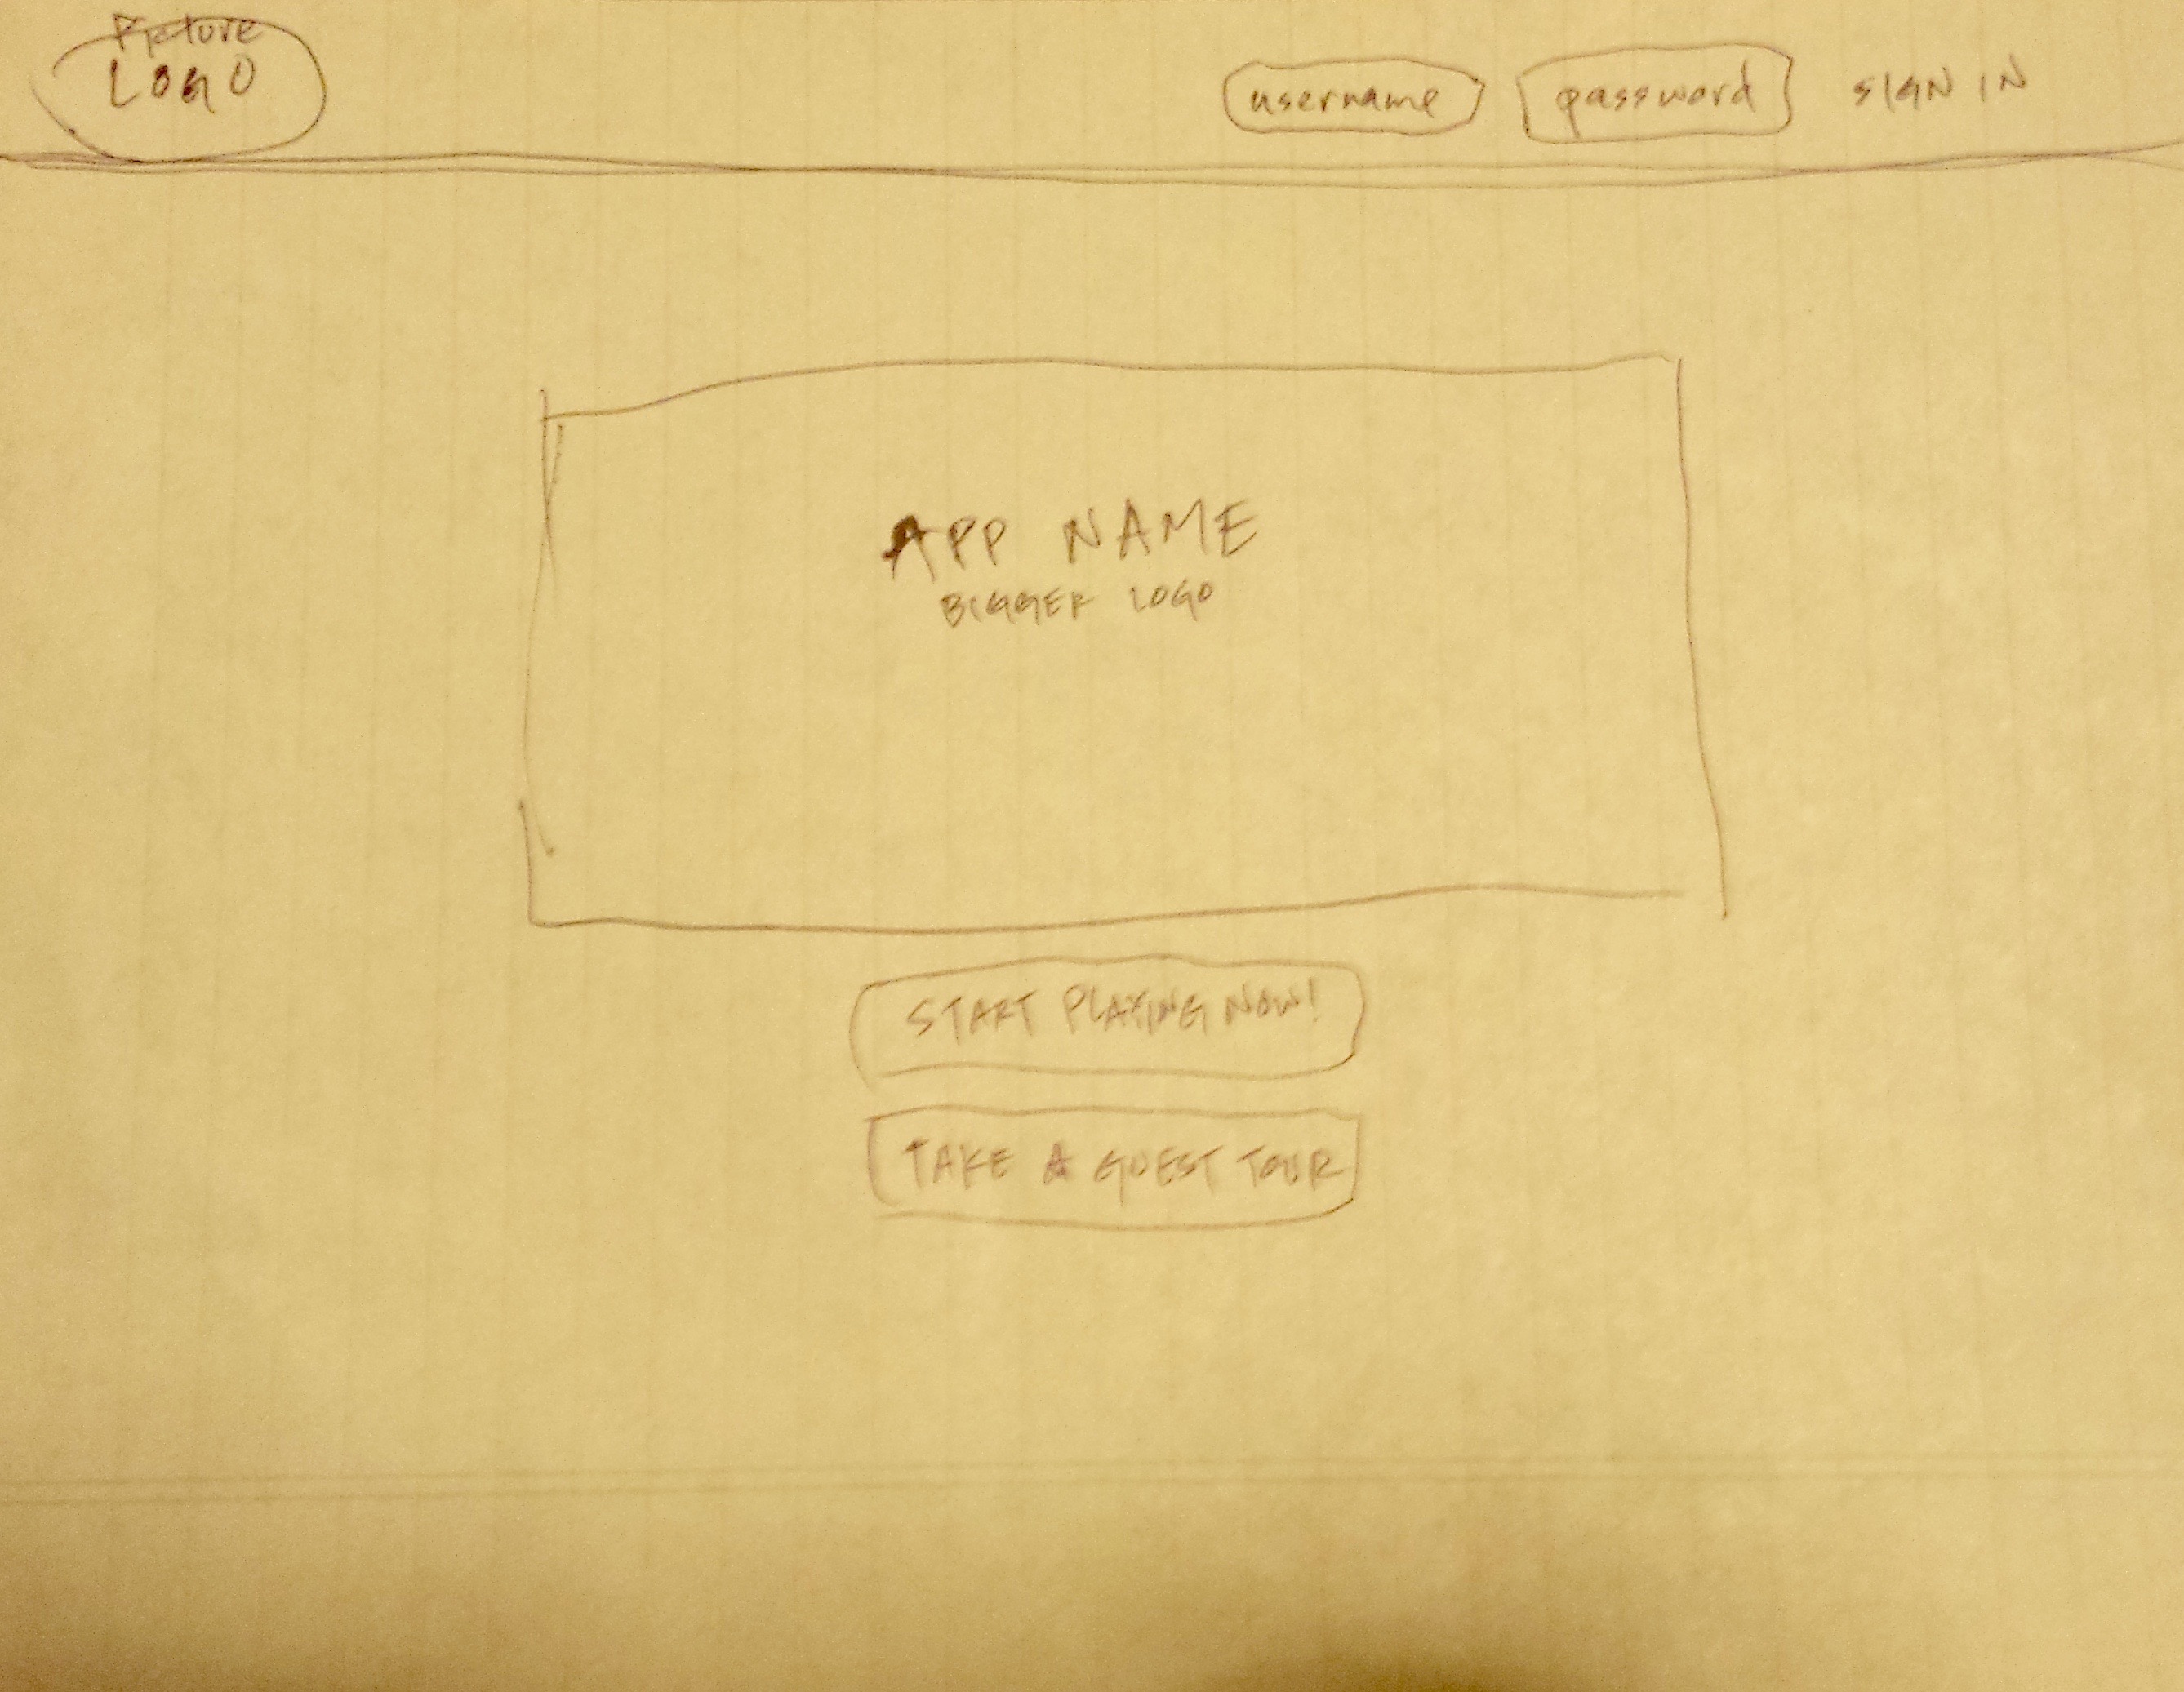 Picture
LOGO
username password SIGN IN
APP NAME
BIGGER LOGO
START PLAYING NOW!
TAKE A GUEST TOUR